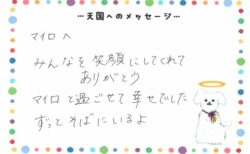 …天国へのメッセージ…
マイロへ
みんなを笑顔にしてくれて
ありがとう
マイロと過ごせて幸せでした
ずっとそばにいるよ